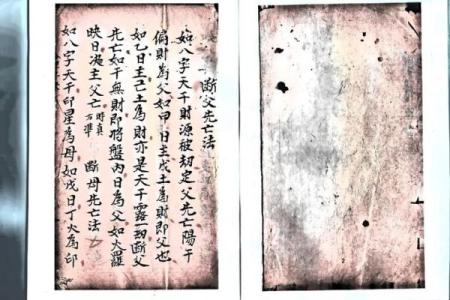 断父先亡法
如八字天干財源被刼定父先亡陽干
偏財為父如甲日主戊土為財即父也
如乙日主己土為財亦是天干露一刼断父
先亡如干無財即將盤內日為父如火羅
映日主父亡時真方準 断母先亡法
如八字天干印星為母如戊日丁火為印